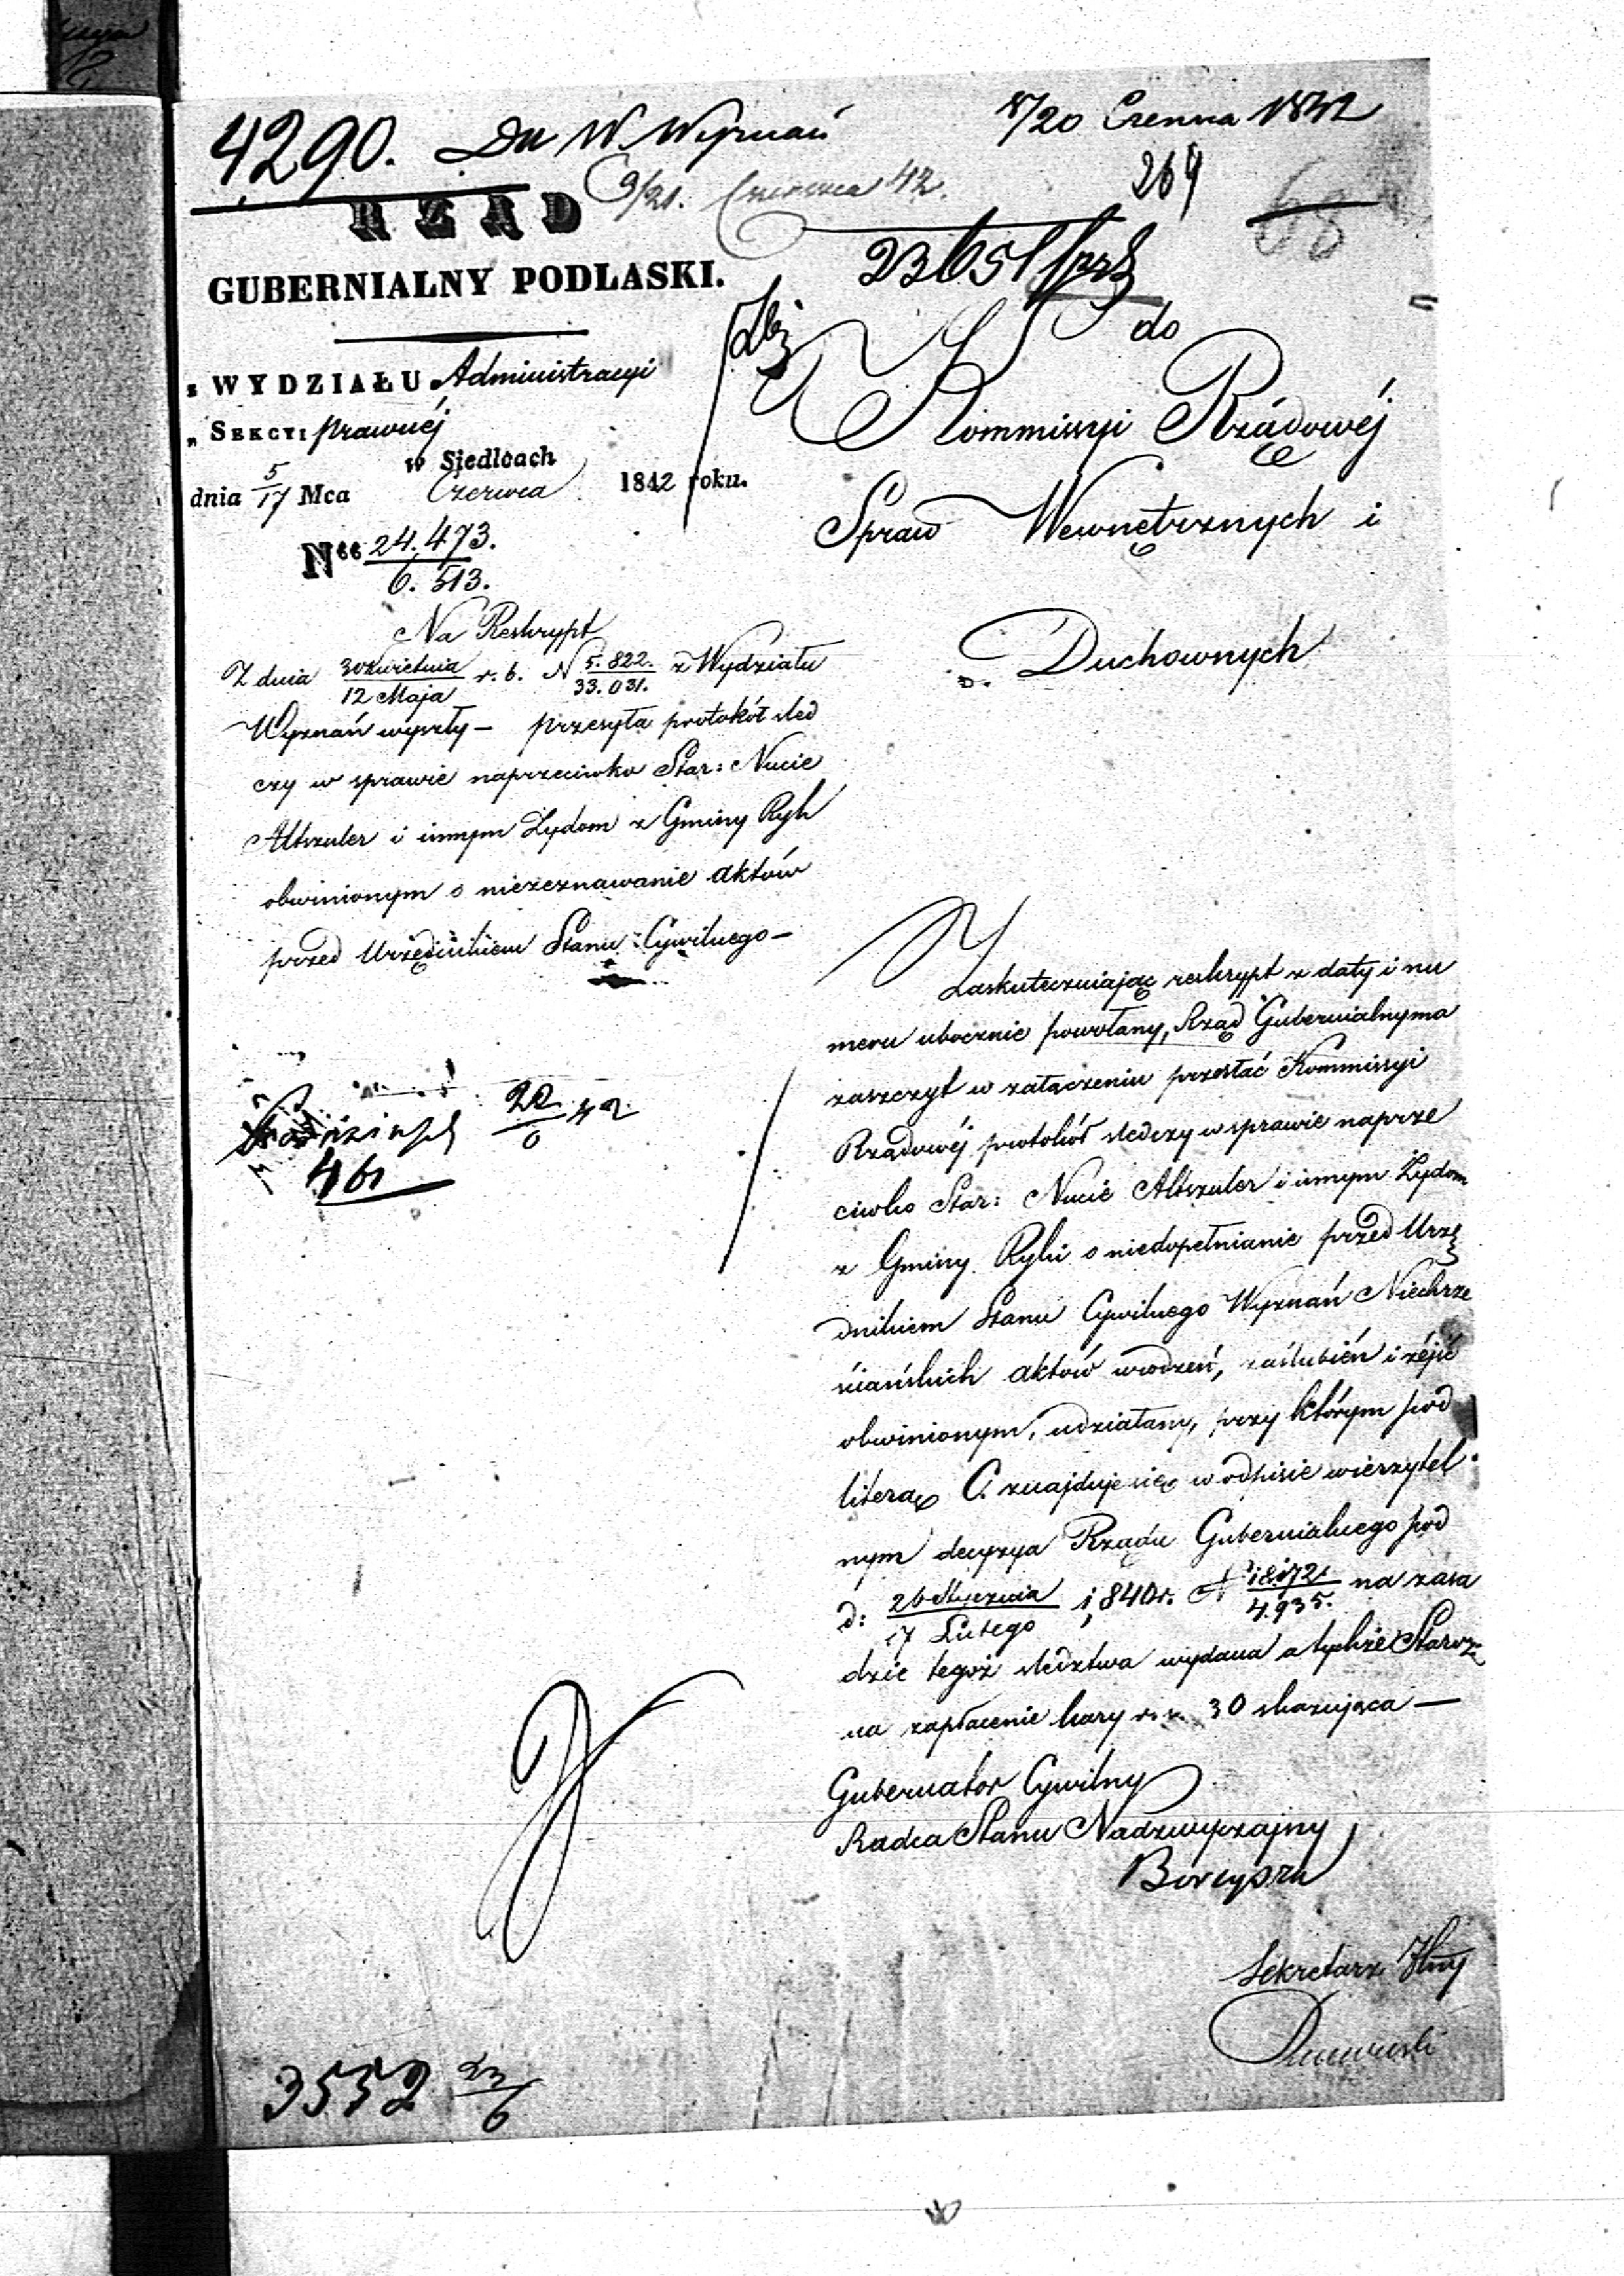 4290. Du W. Wyznań 8/20 Czerwca 1842
9/21. Czerwca 42. 264
68
RZĄD
23651
GUBERNIALNY PODLASKI.
do
z WYDZIAŁU Administracyi
Kommissyi Rządowéj
„ SEKCYI Prawnéj
w Siedlcach
dnia 5/17 Mca Czerwca 1842 roku.
Spraw Wewnętrznych i
Nee 24.473.
6.513.
Duchownych
Na Reskrypt
Z dnia 30 Kwietnia / 12 Maja r. b. N 5.822. / 33.031. z Wydziału
Wyznań wyszły – przesyła protokół śled
czy w sprawie naprzeciwko Star: Nucie
Altszuler i innym Żydom z Gminy Ryk
obwinionym o niezeznawanie aktów
przed Urzędnikiem Stanu Cywilnego –
Zaskuteczniając reskrypt z daty i nu
meru ubocznie powołany, Rząd Gubernialny ma
zaszczyt w załączeniu przesłać Kommissyi
Rządowéj protokół śledczy w sprawie naprze
ciwko Star: Nucie Altszuler i innym Żydom
z Gminy Ryki o niedopełnianie przed Urzę
dnikiem Stanu Cywilnego Wyznań Niechrze
ściańskich aktów urodzeń, zaślubień i zejść
obwinionym, udziałany, przy którym pod
literą C. znajduje się w odpisie wierzytel
nym decyzya Rządu Gubernialnego pod
d: 26 Stycznia / 17 Lutego 1,840 r. N 18.172. / 4.935. na zasa
dzie tegoż śledztwa wydana a tychże Staroz:
na zapłacenie kary r. s. 30 skazująca –
22/6 42
461
Gubernator Cywilny
Radca Stanu Nadzwyczajny
Sekretarz Jlny
3552 23/6